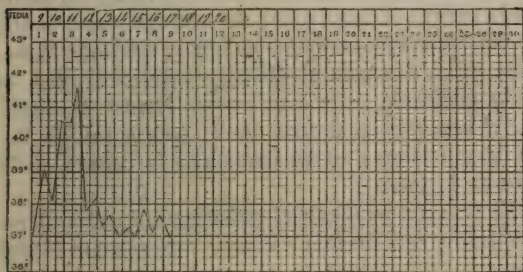 FECHA 9 10 11 12 13 14 15 16 17 18 19 20
1 2 3 4 5 6 7 8 9 10 11 12 13 14 15 16 17 18 19 20 21 22 23 24 25 26 27 28 29 30
43°
42°
41°
40°
39°
38°
37°
36°